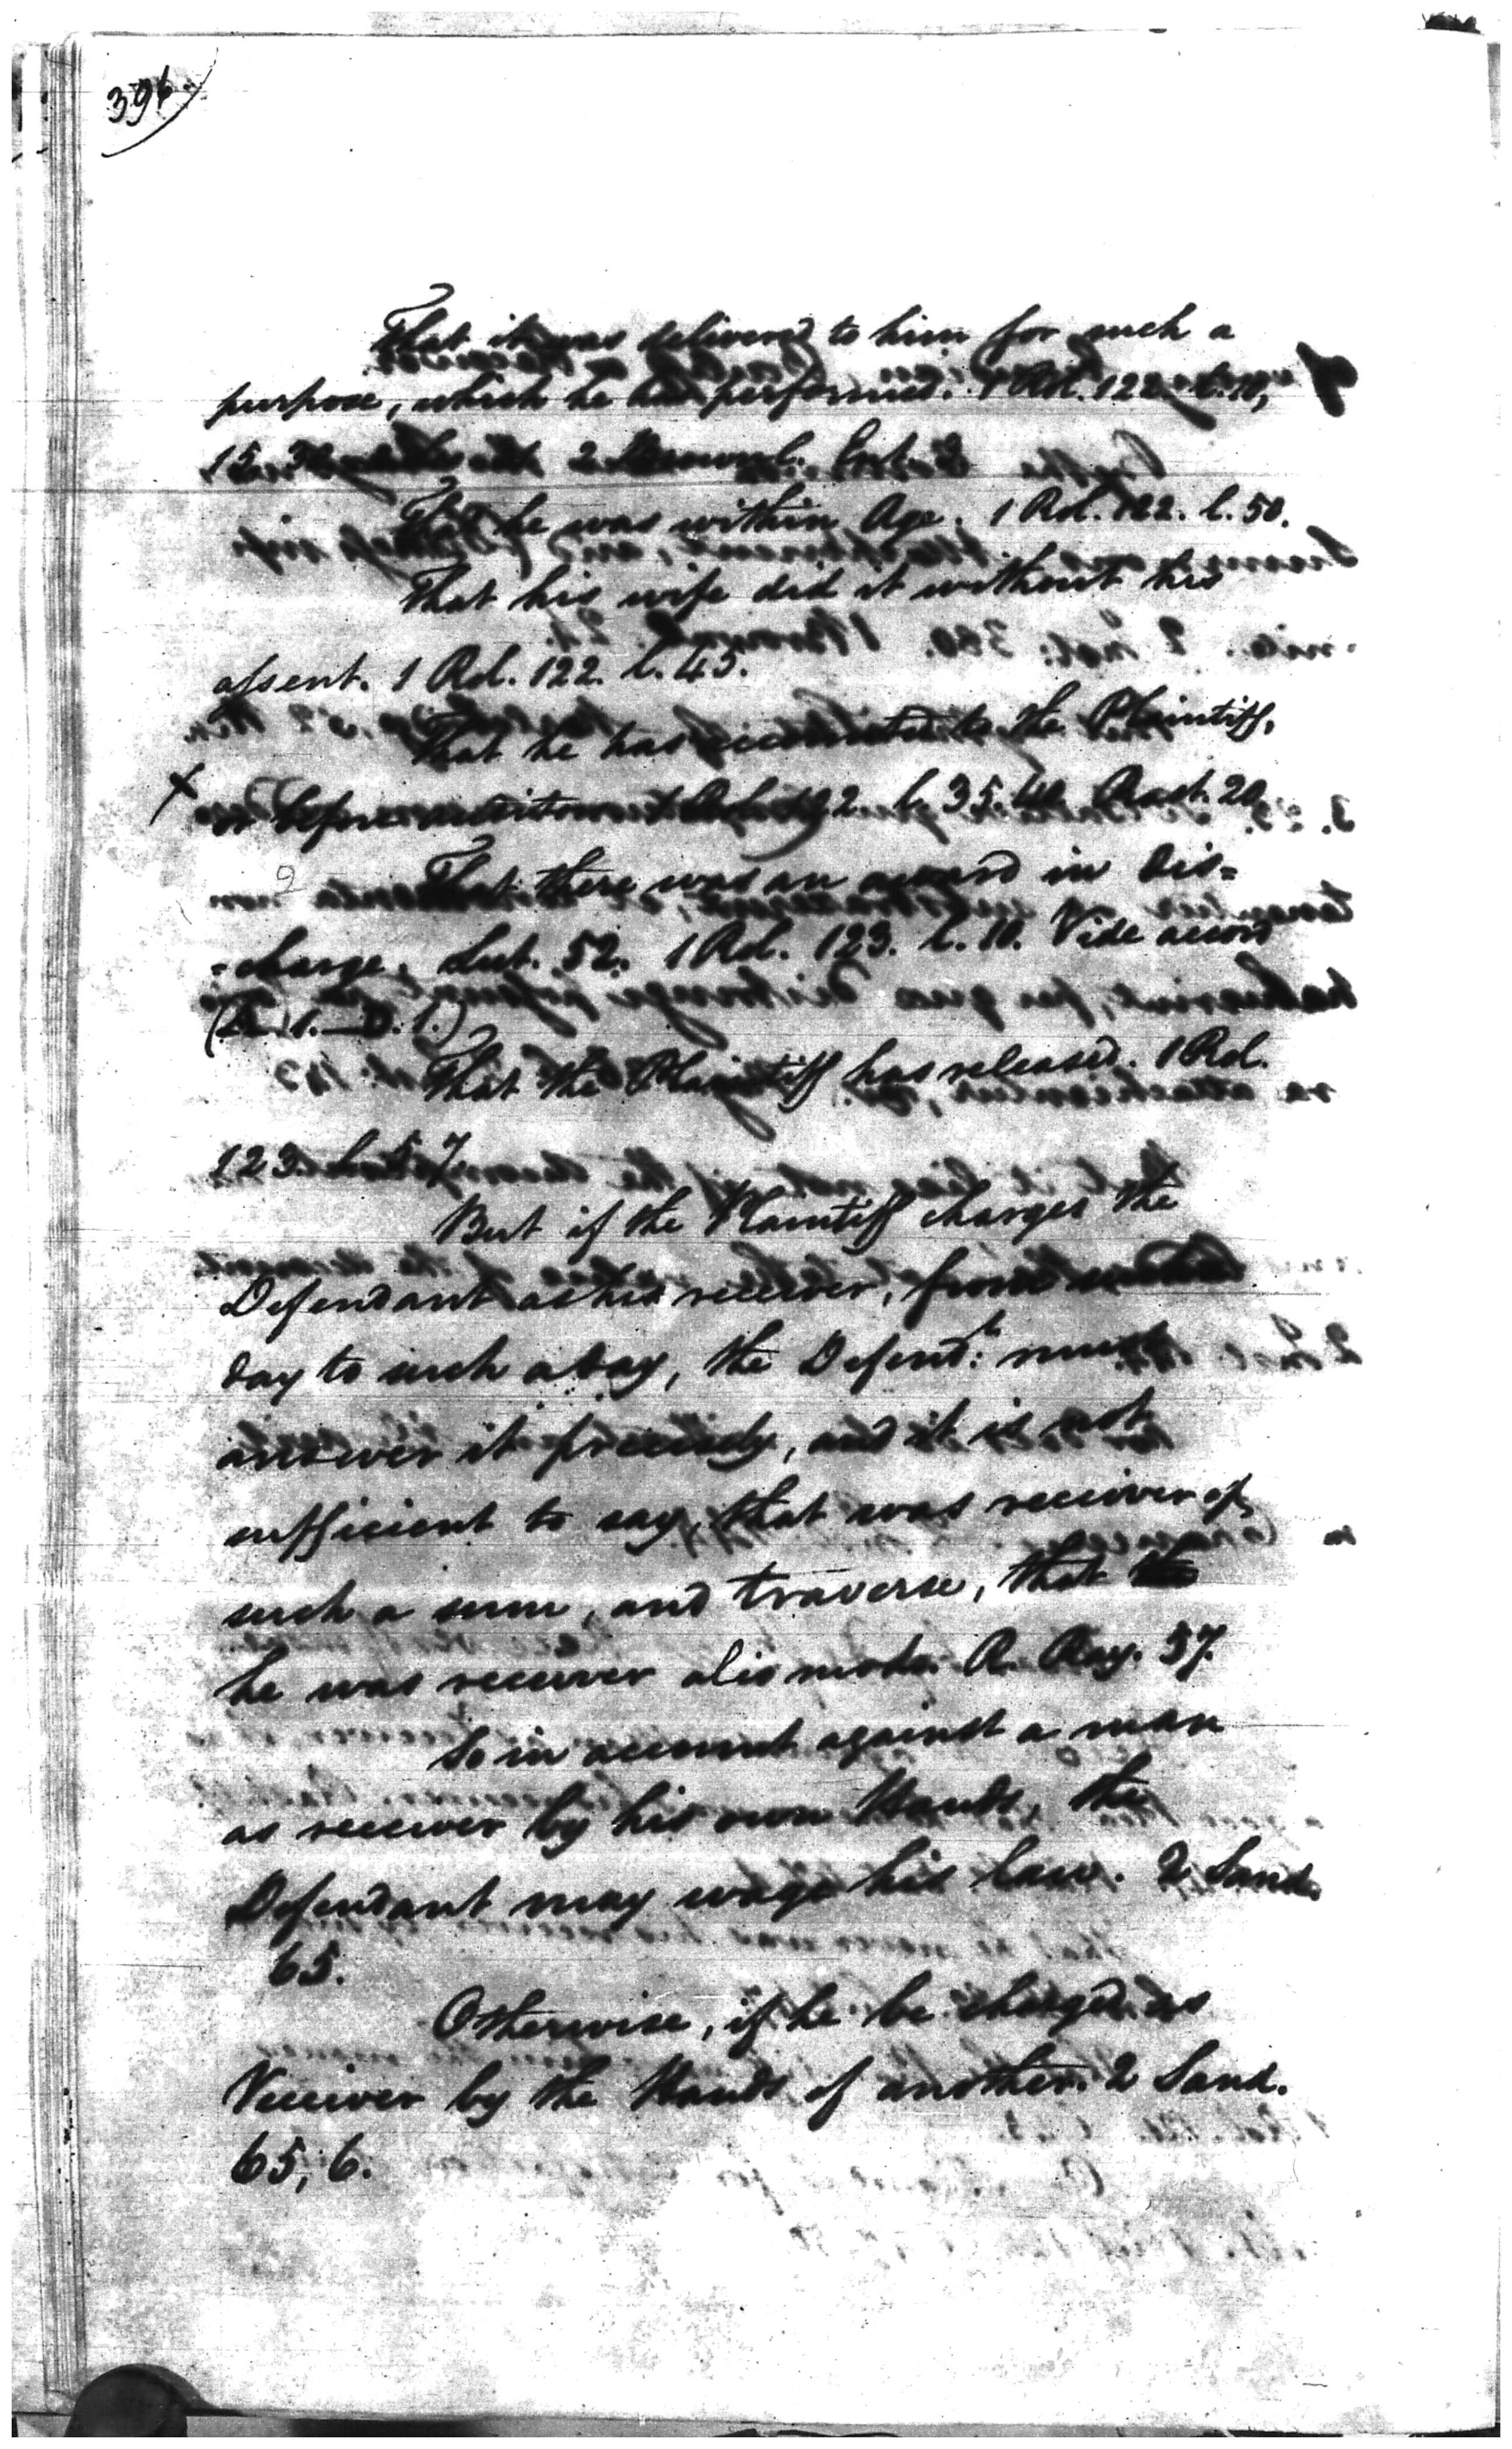 396.
That it was delivered to him for such a
purpose, which he has performed. 1 Rol. 122. l. 10,
15. 2 Ent.
That he was within Age. 1 Rol. 122. l. 50.
That his wife did it without his
assent. 1 Rol. 122. l. 45.
That he has accounted to the Plaintiff,
x or before auditors 1 Rol. 122. l. 35. 40. Rast. 20.
That there was an award in Dis=
=charge, Lut. 52. 1 Rol. 123. l. 10. Vide accord
(A. 1. D. 1.)
That the Plaintiff has released. 1 Rol.
123. l. 7
But if the Plaintiff charges the
Defendant as his receiver, from such
day to such a day, the Defend:t must
answer it precisely, and it is not
sufficient to say, that was receiver of
such a sum, and traverse, that
he was receiver alio modo. R. Ray. 57.
So in account against a man
as receiver by his own Hands, the
Defendant may wage his law. 2 Sand.
65.
Otherwise, if he be charged as
Receiver by the Hands of another. 2 Sand.
65, 6.